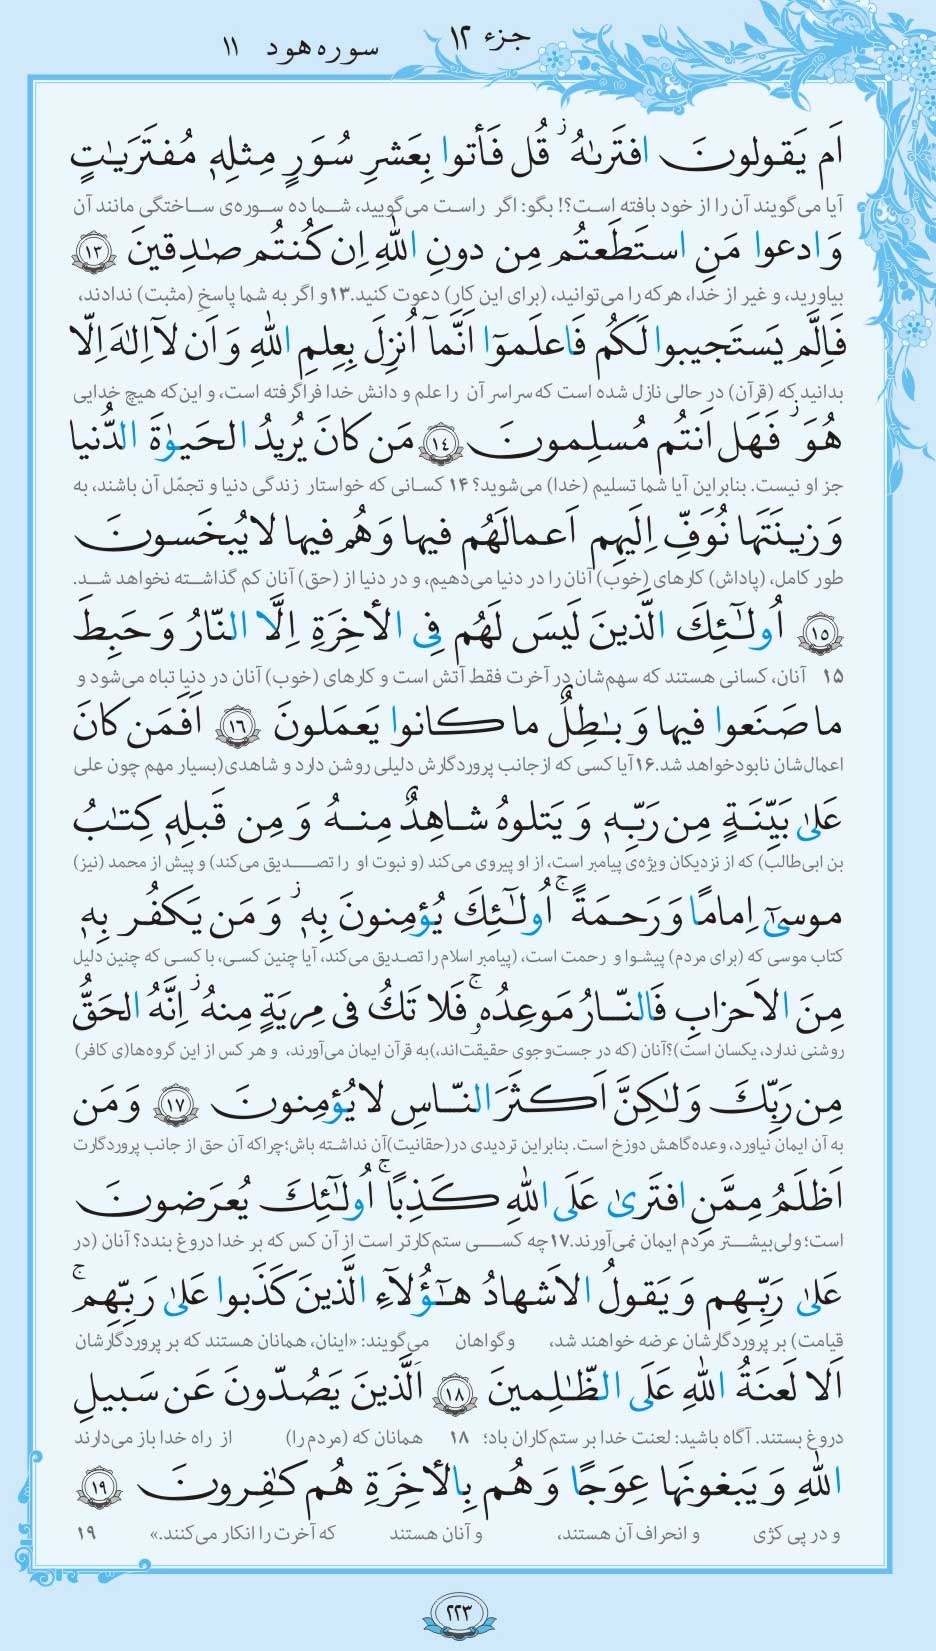 جزء ۱۲
سوره هود ۱۱
اَم یَقولونَ افتَرىٰهُ ۖ قُل فَأتوا بِعَشرِ سُوَرٍ مِثلِهٖ مُفتَرَیٰتٍ
آیا می‌گویند آن را از خود بافته است؟! بگو: اگر راست می‌گویید، شما ده سوره‌ی ساختگی مانند آن
وَ ادعوا مَنِ استَطَعتُم مِن دونِ اللهِ اِن کُنتُم صٰدِقینَ ۱۳
بیاورید، و غیر از خدا، هرکه را می‌توانید، (برای این کار) دعوت کنید.۱۳ و اگر به شما پاسخِ (مثبت) ندادند،
فَاِلَّم یَستَجیبوا لَکُم فَاعلَموٓا اَنَّمآ اُنزِلَ بِعِلمِ اللهِ وَ اَن لآ اِلٰهَ اِلّا
بدانید که (قرآن) در حالی نازل شده است که سراسر آن را علم و دانش خدا فراگرفته است، و این‌که هیچ خدایی
هُوَ ۖ فَهَل اَنتُم مُسلِمونَ ۱۴ مَن کانَ یُریدُ الحَیوٰةَ الدُّنیا
جز او نیست. بنابراین آیا شما تسلیم (خدا) می‌شوید؟ ۱۴ کسانی که خواستار زندگی دنیا و تجمّل آن باشند، به
وَ زینَتَها نُوَفِّ اِلَیهِم اَعمالَهُم فیها وَ هُم فیها لا یُبخَسونَ
طور کامل، (پاداش) کارهای (خوب) آنان را در دنیا می‌دهیم، و در دنیا از (حق) آنان کم گذاشته نخواهد شد.
۱۵ اُولٰٓئِکَ الَّذینَ لَیسَ لَهُم فِی الأخِرَةِ اِلَّا النّارُ وَ حَبِطَ
۱۵ آنان، کسانی هستند که سهم‌شان در آخرت فقط آتش است و کارهای (خوب) آنان در دنیا تباه می‌شود و
ما صَنَعوا فیها وَ بٰطِلٌ ما کانوا یَعمَلونَ ۱۶ اَفَمَن کانَ
اعمال‌شان نابود خواهد شد.۱۶ آیا کسی که از جانب پروردگارش دلیلی روشن دارد و شاهدی (بسیار مهم چون علی
عَلىٰ بَیِّنَةٍ مِن رَبِّهٖ وَ یَتلوهُ شاهِدٌ مِنهُ وَ مِن قَبلِهٖ کِتٰبُ
بن ابی‌طالب) که از نزدیکان ویژه‌ی پیامبر است، از او پیروی می‌کند (و نبوت او را تصدیق می‌کند) و پیش از محمد (نیز)
موسىٰٓ اِمامًا وَ رَحمَةً ۚ اُولٰٓئِکَ یُؤمِنونَ بِهٖ ۖ وَ مَن یَکفُر بِهٖ
کتاب موسی که (برای مردم) پیشوا و رحمت است، (پیامبر اسلام را تصدیق می‌کند، آیا چنین کسی، با کسی که چنین دلیل
مِنَ الاَحزابِ فَالنّارُ مَوعِدُهٗ ۚ فَلا تَکُ فی مِریَةٍ مِنهُ ۖ اِنَّهُ الحَقُّ
روشنی ندارد، یکسان است)؟ آنان (که در جست‌وجوی حقیقت‌اند،) به قرآن ایمان می‌آورند، و هر کس از این گروه‌ها(ی کافر)
مِن رَبِّکَ وَلٰکِنَّ اَکثَرَ النّاسِ لا یُؤمِنونَ ۱۷ وَ مَن
به آن ایمان نیاورد، وعده‌گاهش دوزخ است. بنابراین تردیدی در (حقانیت) آن نداشته باش؛ چراکه آن حق از جانب پروردگارت
اَظلَمُ مِمَّنِ افتَرىٰ عَلَی اللهِ کَذِبًا ۚ اُولٰٓئِکَ یُعرَضونَ
است؛ ولی بیشتر مردم ایمان نمی‌آورند.۱۷ چه کسی ستم‌کارتر است از آن کس که بر خدا دروغ بندد؟ آنان (در
عَلىٰ رَبِّهِم وَ یَقولُ الاَشهادُ هٰٓؤُلآءِ الَّذینَ کَذَبوا عَلىٰ رَبِّهِم ۚ
قیامت) بر پروردگارشان عرضه خواهند شد، و گواهان می‌گویند: «اینان، همانان هستند که بر پروردگارشان
اَلا لَعنَةُ اللهِ عَلَی الظّٰلِمینَ ۱۸ الَّذینَ یَصُدّونَ عَن سَبیلِ
دروغ بستند. آگاه باشید: لعنت خدا بر ستم‌کاران باد؛ ۱۸ همانان که (مردم را) از راه خدا باز می‌دارند
اللهِ وَ یَبغونَها عِوَجًا وَ هُم بِالأخِرَةِ هُم کٰفِرونَ ۱۹
و در پی کژی و انحراف آن هستند، و آنان هستند که آخرت را انکار می‌کنند.» ۱۹
۲۲۳